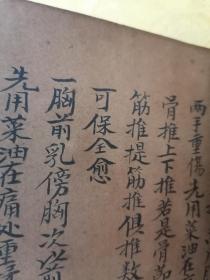 两手重傷先用菜油在
骨推上下推若是骨
筋推提筋推俱推数
可保全愈
一胸前乳傍胸次
先用菜油在痛处重